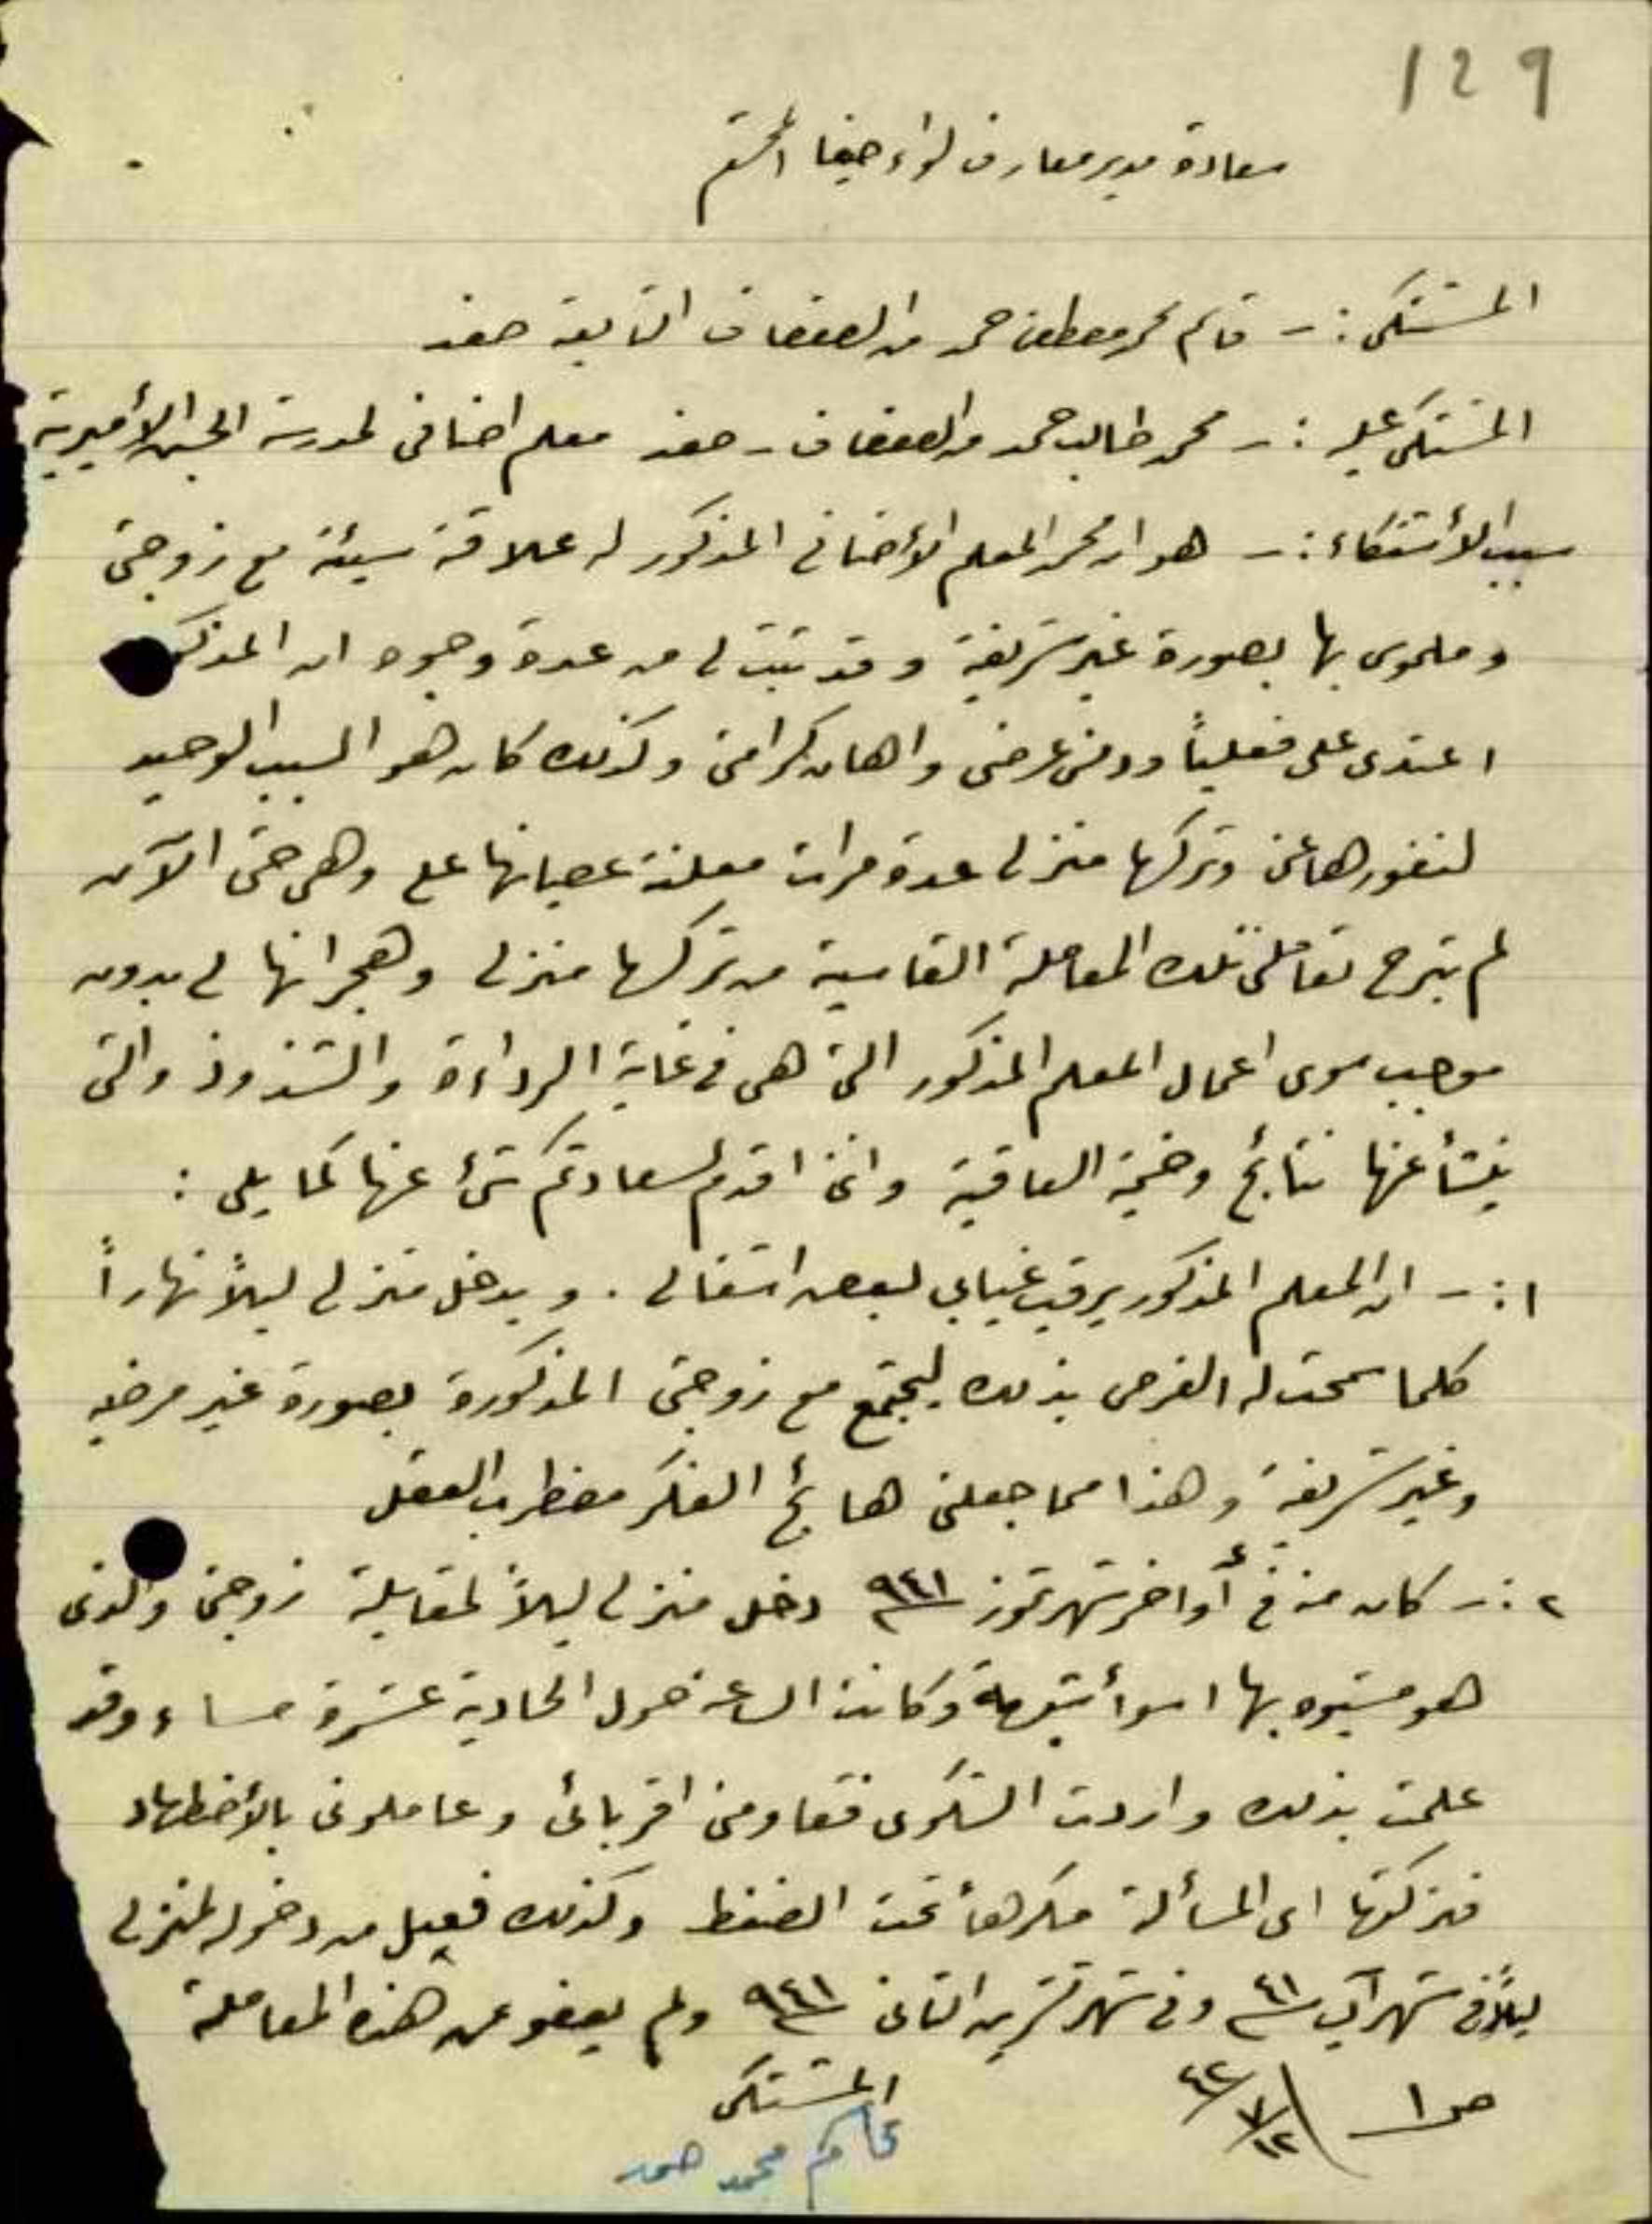 129
سعادة مدير معارف لواء حيفا المحترم
المشتكي :- قاسم محمد مصطفى حمد من الصفصاف التابعة صفد
المشتكى عليه :- محمد طالب حمد من الصفصاف - صفد معلم اضافي لمدرسة الجش الأميرية
سبب الأشتكاء :- هو ان محمد المعلم الأضافي المذكور له علاقة سيئة مع زوجتي
و ملموس بها بصورة غير شريفة وقد ثبت لي من عدة وجوه ان المذكور
اعتدى على فعلياً ودنس عرضي واهان كرامتي وكذلك كان هو السبب الوحيد
لنفورها عني وتركها منزلي عدة مرات معلنة عصيانها علي وهي حتى الآن
لم تبرح تعاملني تلك المعاملة القاسية من تركها منزلي وهجرانها لي بدون
موجب سوى اعمال المعلم المذكور التي هي في غاية الرداءة والشذوذ والتي
ينشأ عنها نتائج وخيمة العاقبة وانني اقدم لسعادتكم شئ عنها كما يلي :
١ :- ان المعلم المذكور يرقب غيابي لبعض اشغالي . و يدخل منزلي ليلاً نهاراً
كلما سمحت له الفرص بذلك ليجتمع مع زوجتي المذكورة بصورة غير مرضيه
وغير شريفة وهذا مما جعلني هائج الفكر مضطرب العقل
٢ :- كان منه في أواخر شهر تموز ٩٤١ دخل منزلي ليلاً لمقابلة زوجتي والذي
هو مشبوه بها اسوأ شبهة وكانت الساعه حول الحادية عشرة مساء وقد
علمت بذلك واردت الشكوى فقاومني اقربائي وعاملوني بالأضطهاد
فتركتها اي المسألة مكرهاً تحت الضغط وكذلك فعل من دخوله لمنزلي
ليلاً في شهر آب ٤١ وفي شهر تشرين الثاني ٩٤١ ولم يعفو عن هذه المعاملة
ص ١ ١٢/٧/٤٢ المشتكي
قاسم محمد حمد